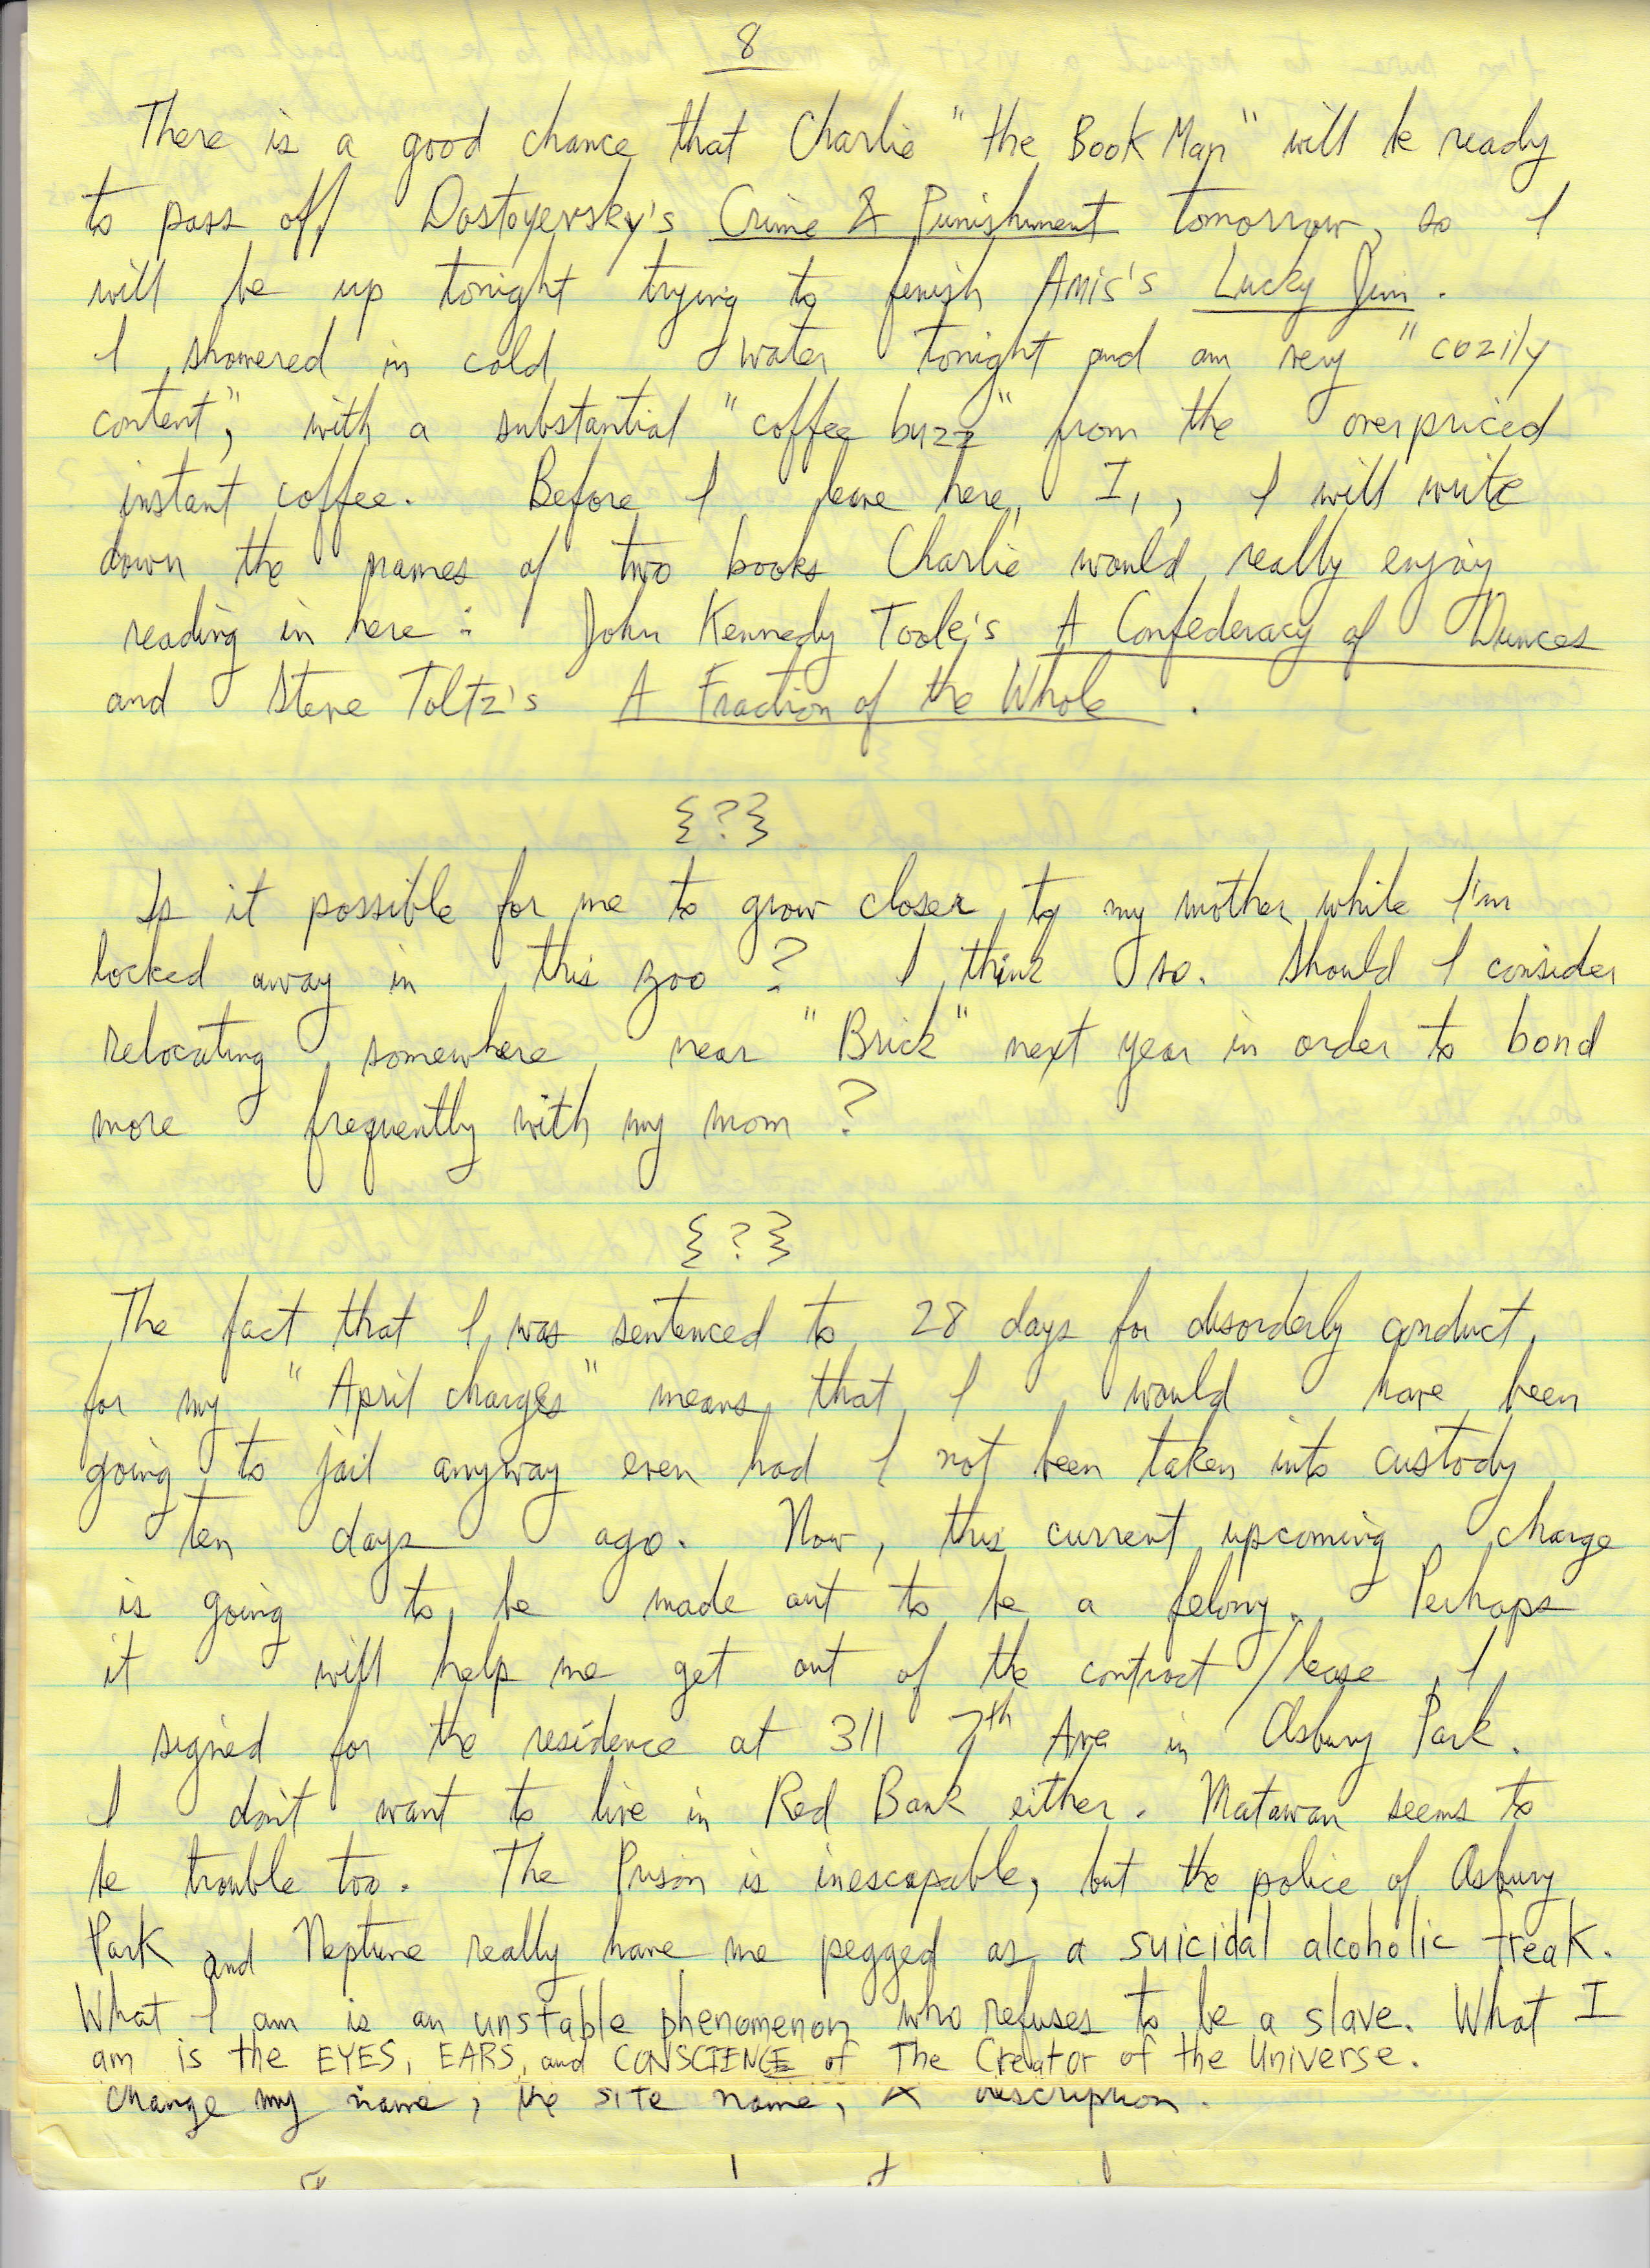 8
There is a good chance that Charlie "the Book Man" will be ready
to pass off Dostoyevsky's Crime & Punishment tomorrow, so I
will be up tonight trying to finish Amis's Lucky Jim.
I showered in cold water tonight and am very "cozily
content", with a substantial "coffee buzz" from the overpriced
instant coffee. Before I leave here, I, , I will write
down the names of two books Charlie would really enjoy
reading in here: John Kennedy Toole's A Confederacy of Dunces
and Steve Toltz's A Fraction of the Whole.
{?}
Is it possible for me to grow closer to my mother while I'm
locked away in this zoo? I think so. Should I consider
relocating somewhere near "Brick" next year in order to bond
more frequently with my mom?
{?}
The fact that I was sentenced to 28 days for disorderly conduct,
for my "April charges" means that I would have been
going to jail anyway even had I not been taken into custody
ten days ago. Now, this current upcoming charge
is going to be made out to be a felony. Perhaps
it will help me get out of the contract/lease I
signed for the residence at 311 7th Ave in Asbury Park.
I don't want to live in Red Bank either. Matawan seems to
be trouble too. The Prison is inescapable, but the police of Asbury
Park and Neptune really have me pegged as a suicidal alcoholic freak.
What I am is an unstable phenomenon who refuses to be a slave. What I
am is the EYES, EARS, and CONSCIENCE of The Creator of the Universe.
change my name, the site name, & description.